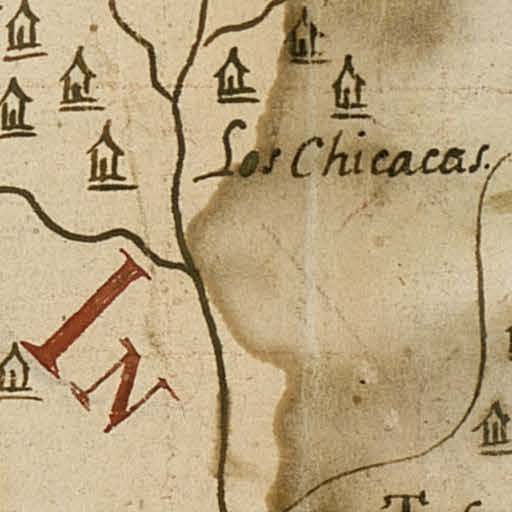 Los Chicacas.
IN